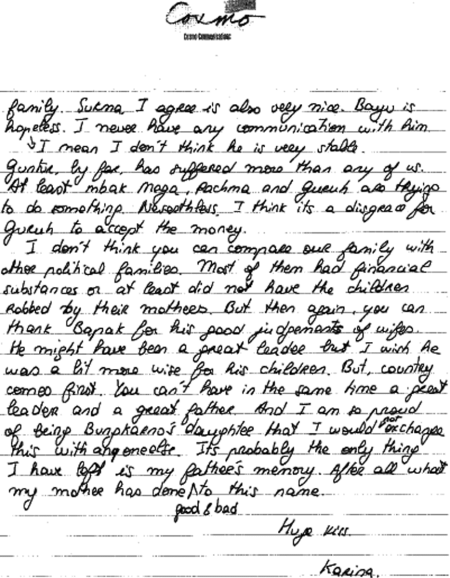 Cosmo
Cosmo Communications
family. Sukma I agree is also very nice. Bayu is
hopeless. I never have any communication with him.
↳ I mean I don't think he is very stable.
Guntur, by far, has suffered more than any of us.
At least mbak Mega, Rachma and Guruh are trying
to do something. Nevertheless I think its a disgrace for
Guruh to accept the money.
I don't think you can compare our family with
other political families. Most of them had financial
substances or at least did not have the children
robbed by their mothers. But then again, you can
thank Bapak for his good judgements of wifes.
He might have been a great leader but I wish he
was a bit more wise for his children. But, country
comes first. You can't have in the same time a great
leader and a great father. And I am so proud
of being Bungkarno's daughter that I would not exchange
this with anyone else. Its probably the only thing
I have left is my father's memory. After all what
my mother has done to this name.
good & bad
Huge kiss.
Karina.